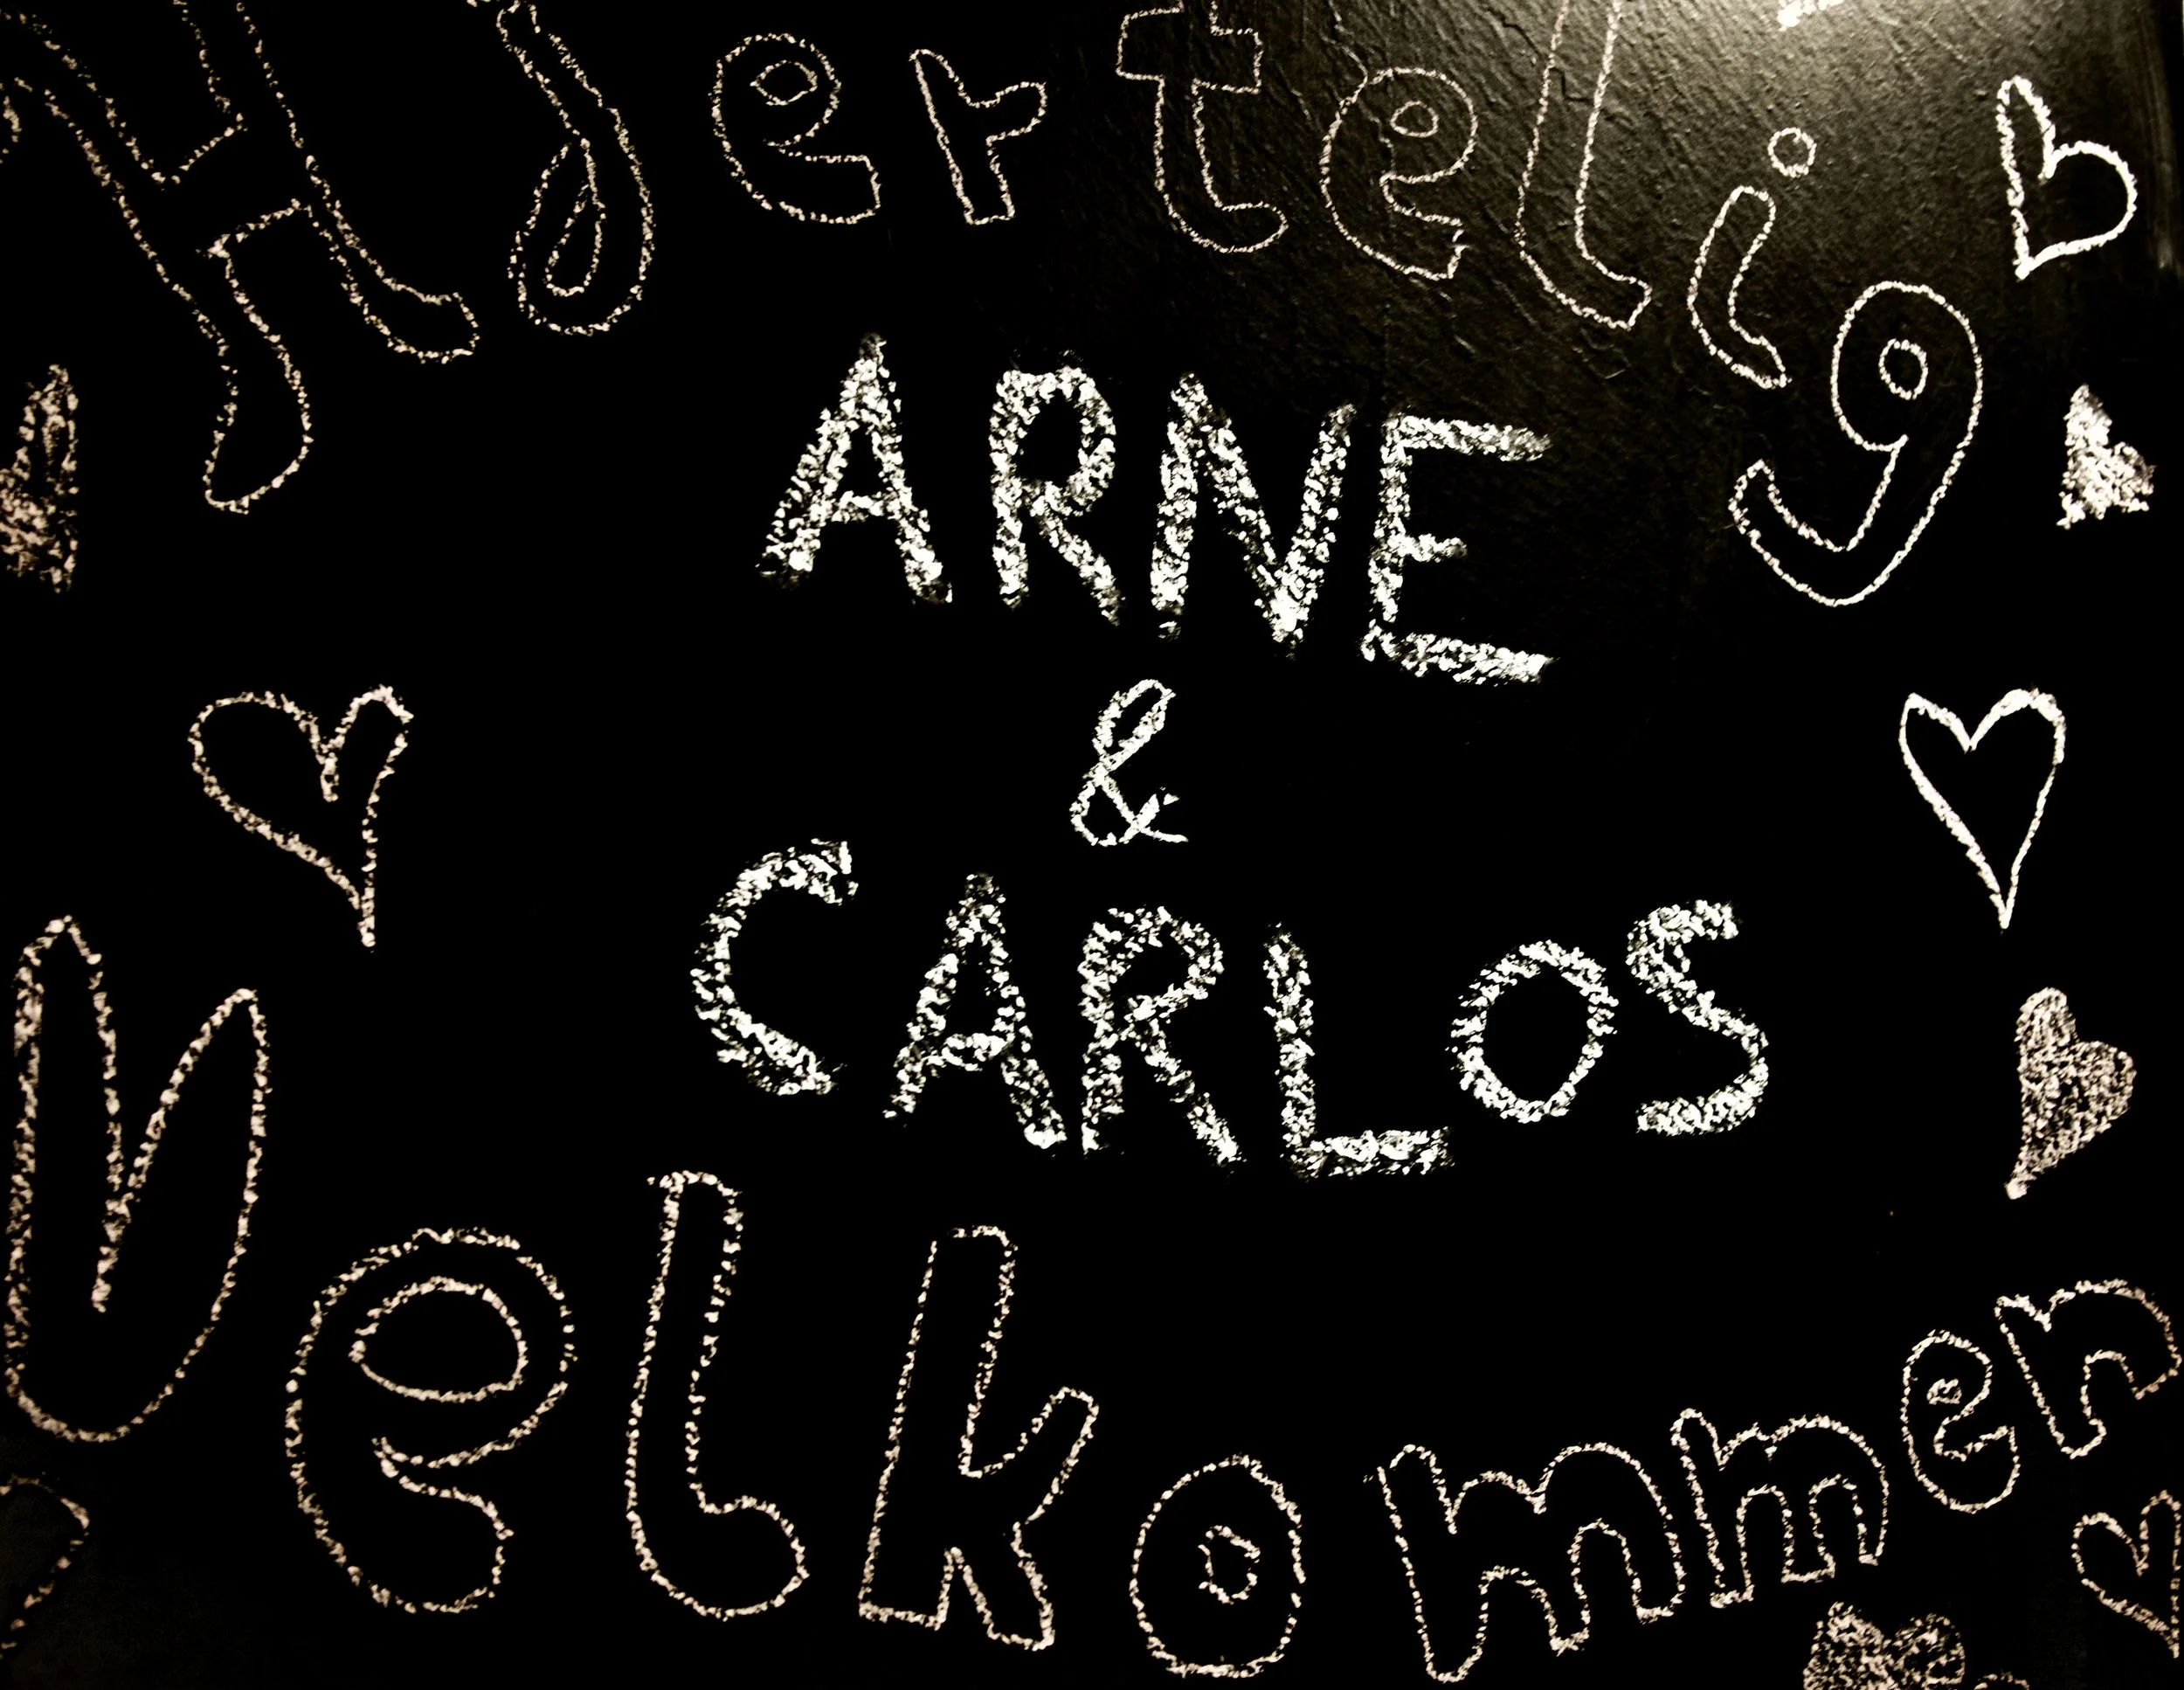 Hjertelig
ARNE
&
CARLOS
Velkommen